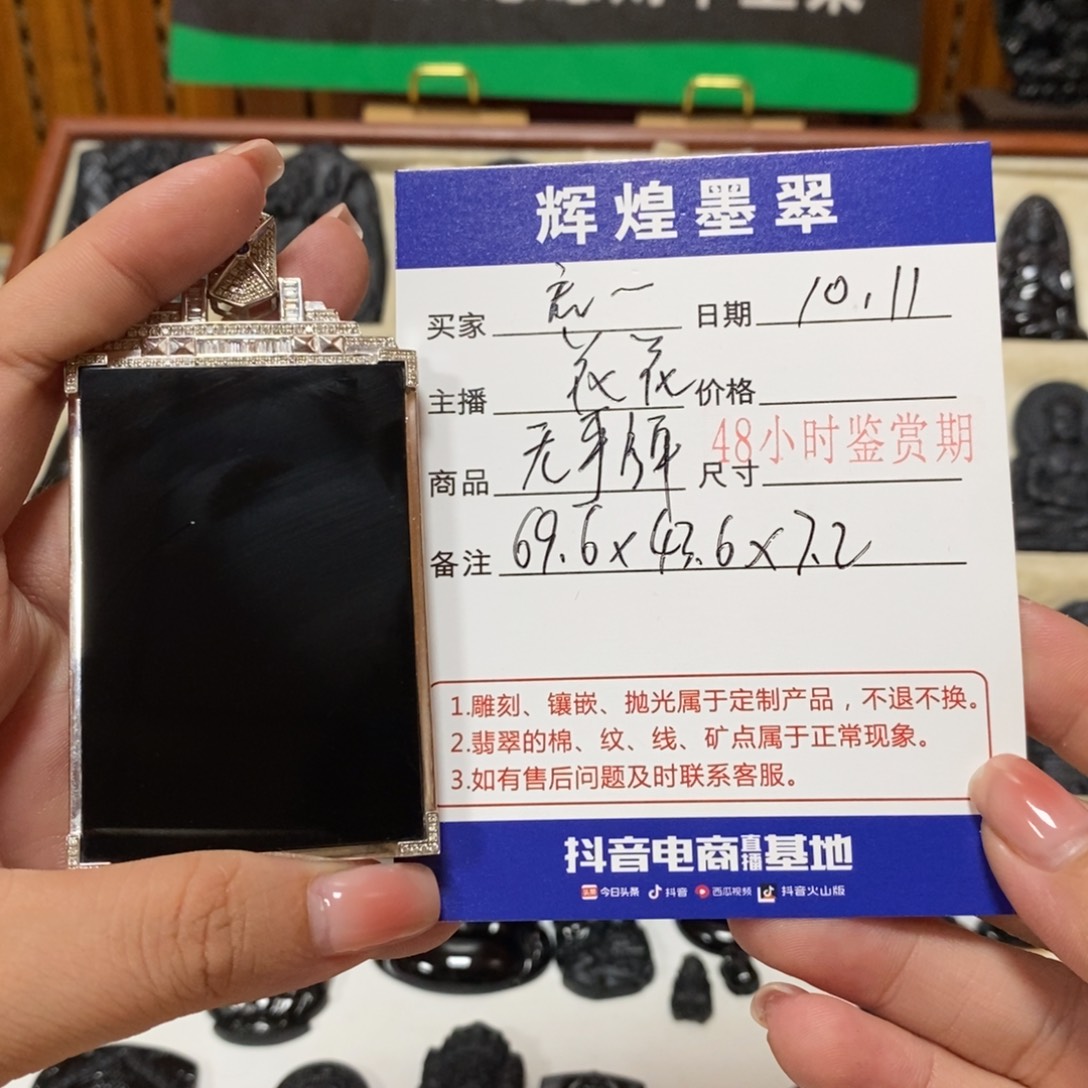 辉煌墨翠
买家 日期 10.11
主播 花花 价格
48小时鉴赏期
商品 无事牌 尺寸
备注 69.6x43.6x7.2
1.雕刻、镶嵌、抛光属于定制产品，不退不换。
2.翡翠的棉、纹、线、矿点属于正常现象。
3.如有售后问题及时联系客服。
抖音电商直播基地
今日头条 抖音 西瓜视频 抖音火山版